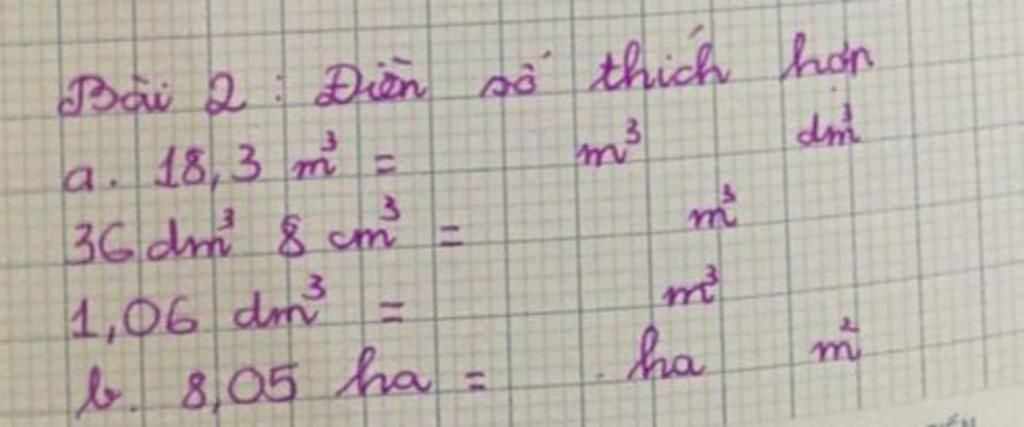 Bài 2 : Điền số thích hợp
a. 18,3 m³ = m³ dm³
36 dm³ 8 cm³ = m³
1,06 dm³ = m³
b. 8,05 ha = ha m²